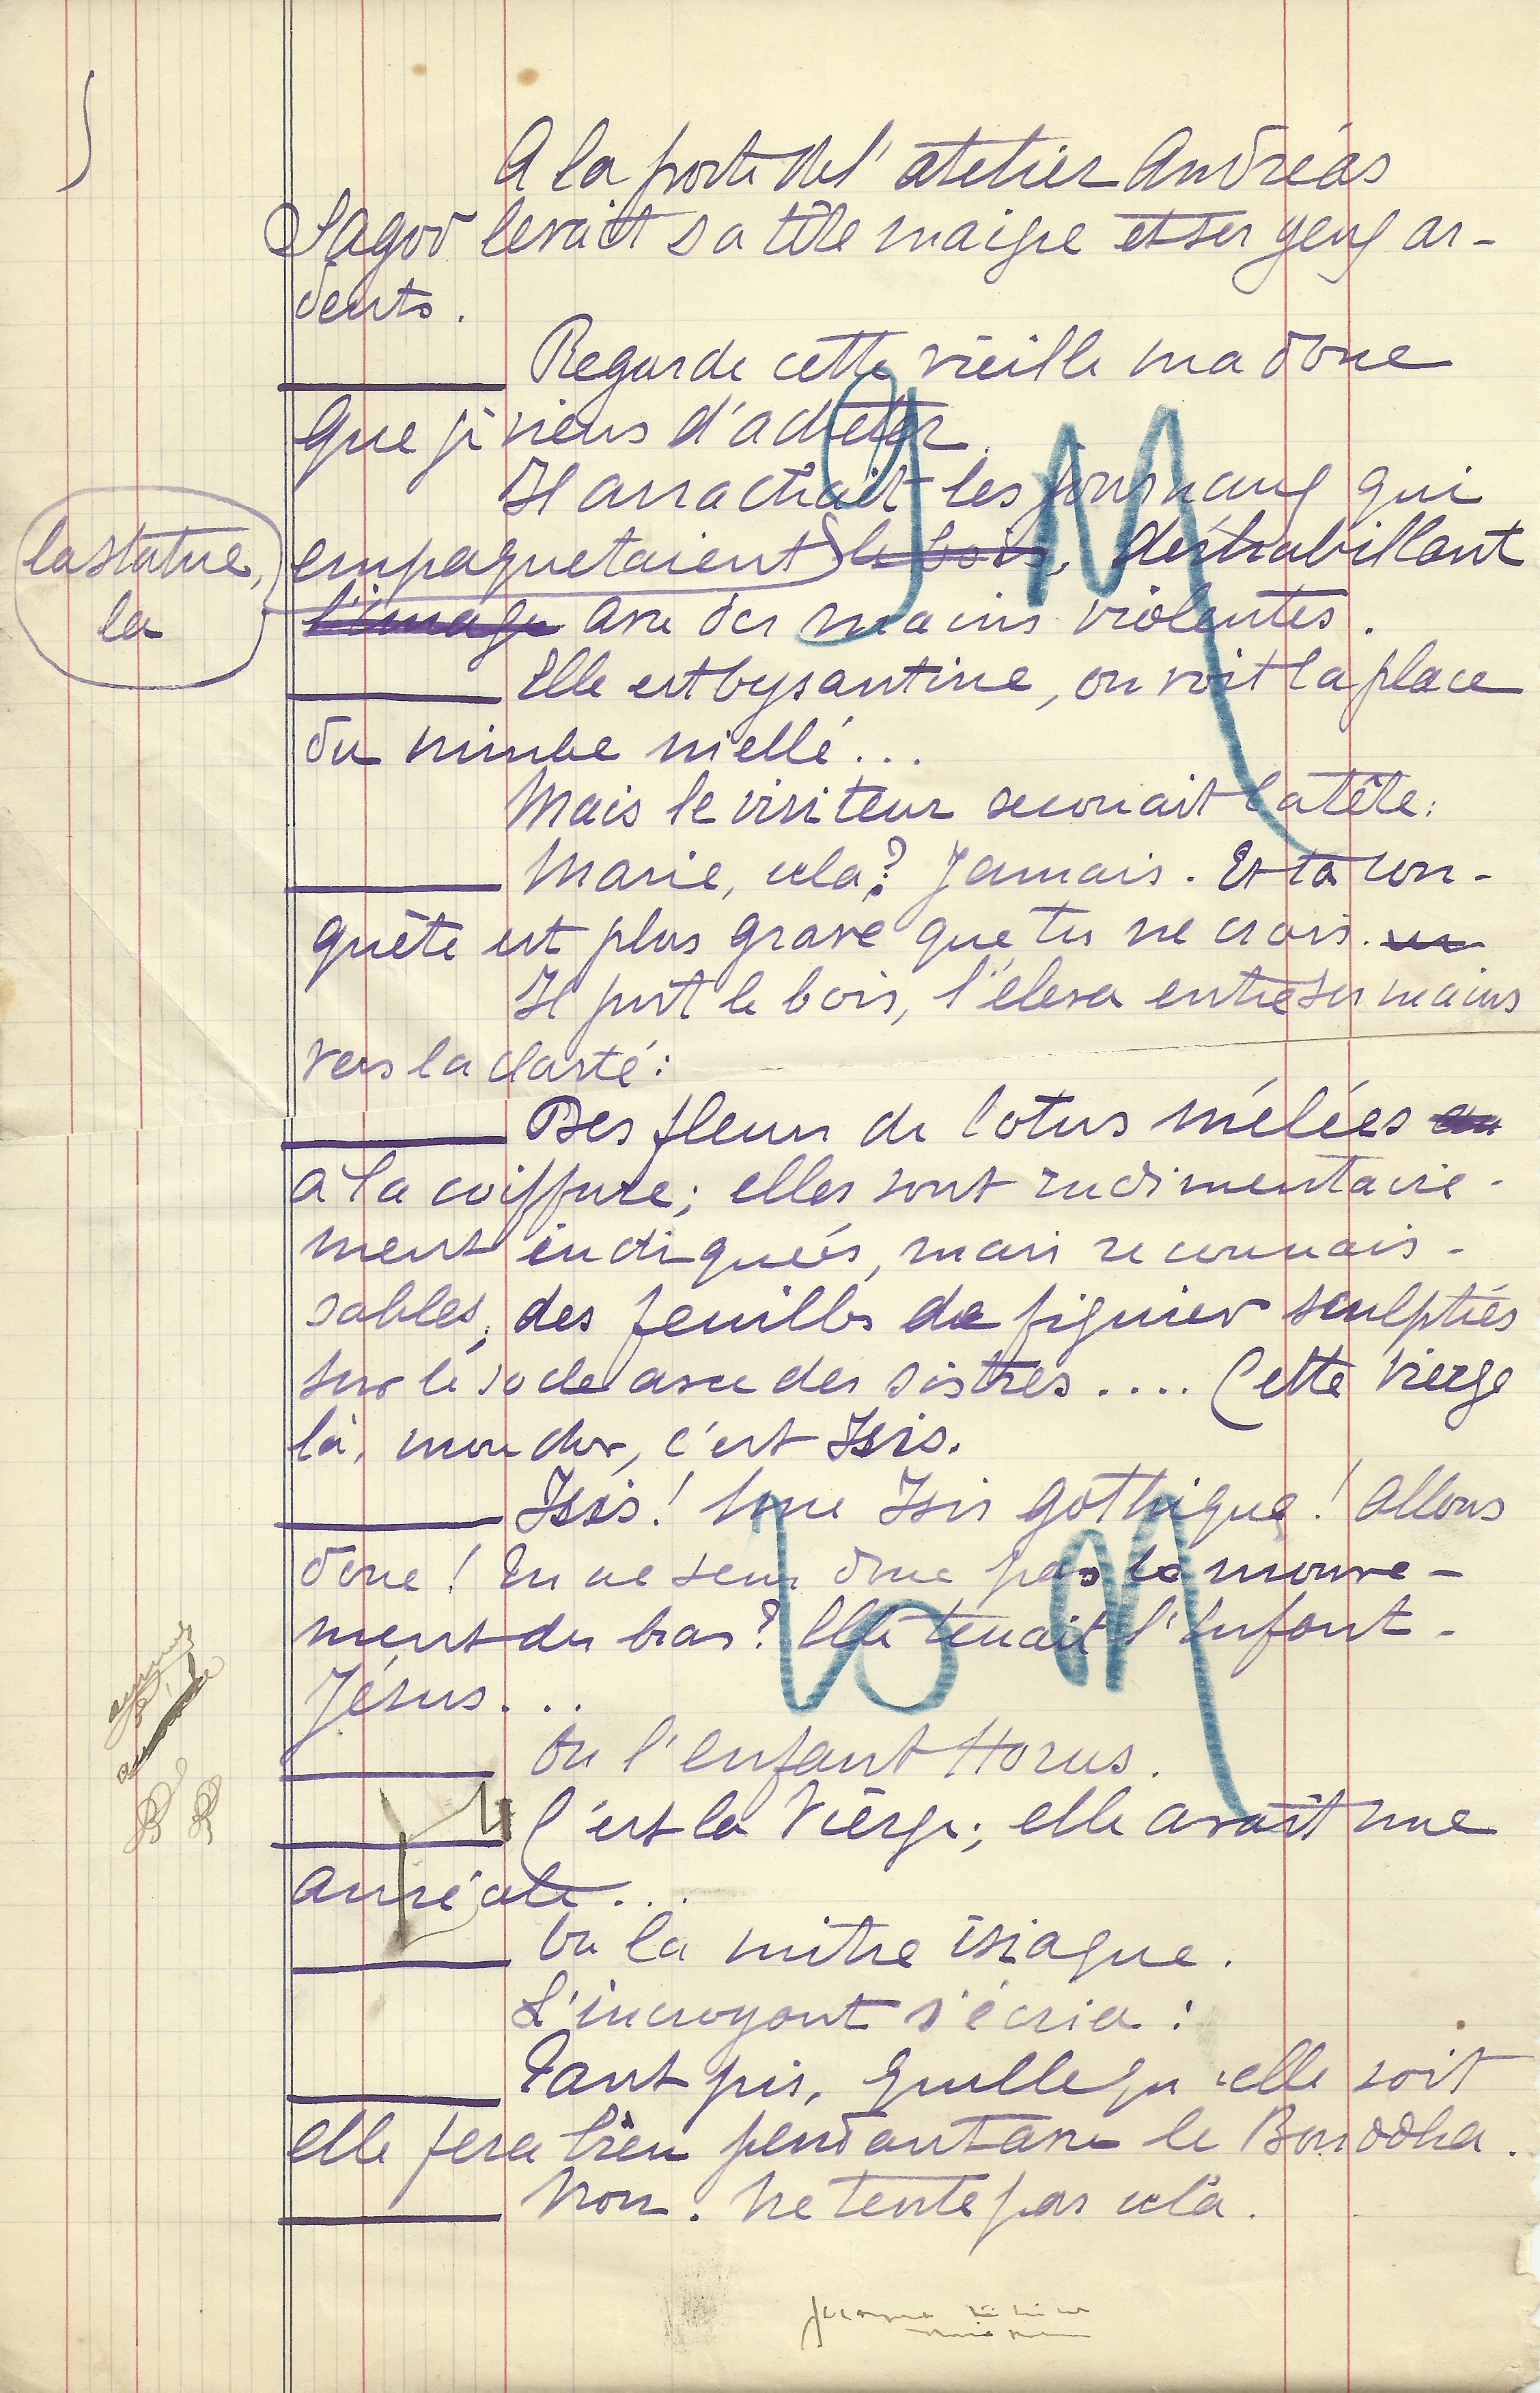 A la porte de l'atelier Andréas
Sagod levait sa tête maigre et ses yeux ar-
dents.
Regarde cette vieille madone
que je viens d'acheter.
Il arrachait les journaux qui
la statue,
la
empaquetaient le bois, déshabillant
l'image avec des mains violentes.
Elle est bysantine, on voit la place
du nimbe niellé...
Mais le visiteur secouait la tête:
Marie, cela? Jamais. Et ta con-
quête est plus grave que tu ne crois.
Il prit le bois, l'éleva entre ses mains
vers la clarté:
Des fleurs de lotus mêlées au
à la coiffure; elles sont rudimentaire-
ment indiquées, mais reconnais-
sables, des feuilles de figuier sculptées
sur le socle avec des sistres.... Cette Vierge
là, mon cher, c'est Isis.
Isis! Une Isis gothique! Allons
donc! Tu ne sens donc pas le mouve-
ment des bras? Elle tenait l'Enfant-
Jésus...
Ou l'enfant Horus.
C'est la Vierge; elle avait une
auréole...
Ou la mitre isiaque.
L'incroyant s'écria:
Tant pis, quelle qu'elle soit
elle fera bien pendant avec le Bouddha.
Non. Ne tente pas cela.